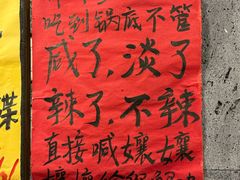 吃到锅底不管
咸了,淡了
辣了不辣
直接喊孃孃
蝶